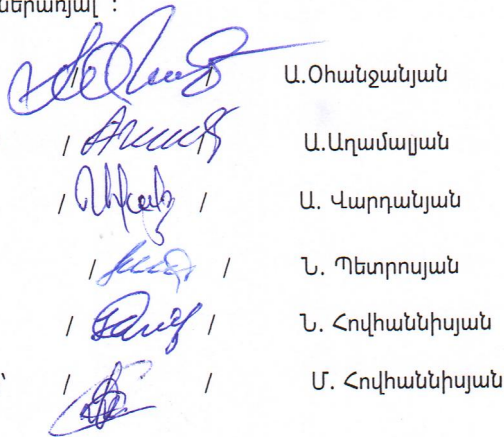 ներառյալ :
/ / Ա.Օհանջանյան
/ / Ա.Աղամալյան
/ / Ա. Վարդանյան
/ / Ն. Պետրոսյան
/ / Ն. Հովհաննիսյան
՝ / / Մ. Հովհաննիսյան